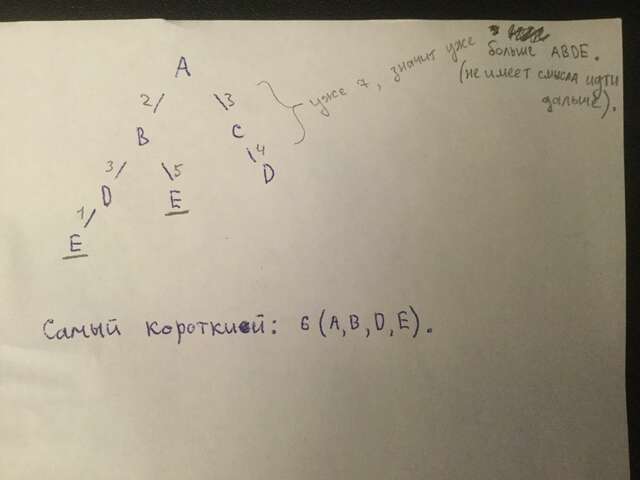 A
2 3
B C
3 5 4
D E D
1
E
уже 7, значит уже
больше ABDE.
(не имеет смысла идти
дальше).
Самый короткий: 6 (A, B, D, E).